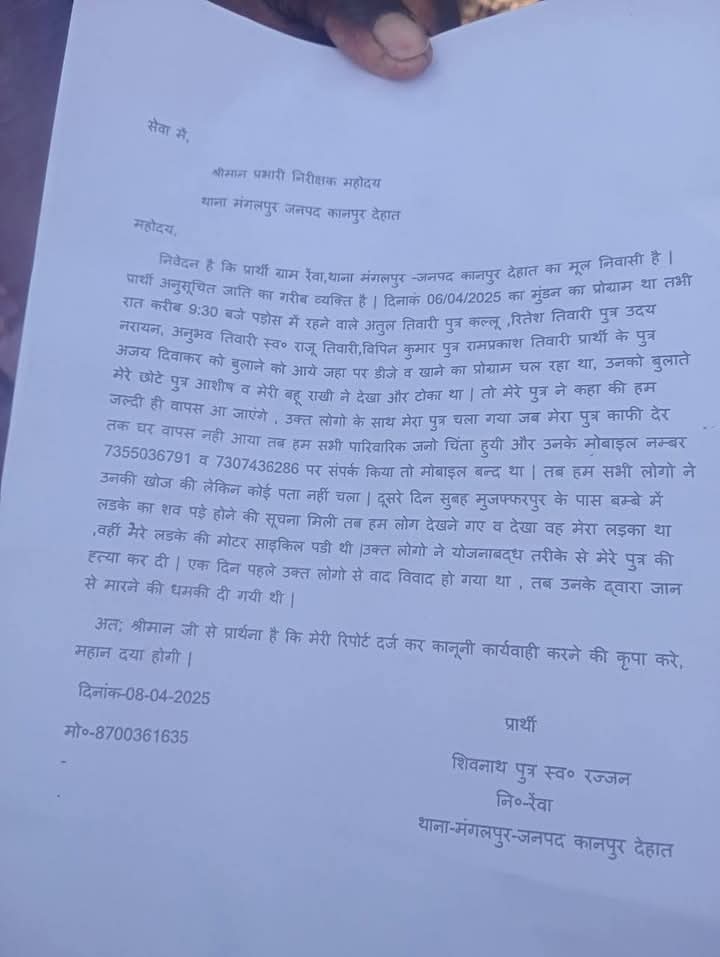 सेवा मै,
श्रीमान प्रभारी निरीक्षक महोदय
थाना मंगलपुर जनपद कानपुर देहात
महोदय,
निवेदन है कि प्रार्थी ग्राम रेंवा,थाना मंगलपुर -जनपद कानपुर देहात का मूल निवासी है |
प्रार्थी अनुसूचित जाति का गरीब व्यक्ति है | दिनाकं 06/04/2025 का मुंडन का प्रोग्राम था तभी
रात करीब 9:30 बजे पड़ोस में रहने वाले अतुल तिवारी पुत्र कल्लू ,रितेश तिवारी पुत्र उदय
नरायन, अनुभव तिवारी स्व० राजू तिवारी,विपिन कुमार पुत्र रामप्रकाश तिवारी प्रार्थी के पुत्र
अजय दिवाकर को बुलाने को आये जहा पर डीजे व खाने का प्रोग्राम चल रहा था, उनको बुलाते
मेरे छोटे पुत्र आशीष व मेरी बहू राखी ने देखा और टोका था | तो मेरे पुत्र ने कहा की हम
जल्दी ही वापस आ जाएंगे , उक्त लोगो के साथ मेरा पुत्र चला गया जब मेरा पुत्र काफी देर
तक घर वापस नही आया तब हम सभी पारिवारिक जनो चिंता हुयी और उनके मोबाइल नम्बर
7355036791 व 7307436286 पर संपर्क किया तो मोबाइल बन्द था | तब हम सभी लोगो ने
उनकी खोज की लेकिन कोई पता नहीं चला | दूसरे दिन सुबह मुजफ्फरपुर के पास बम्बे में
लडके का शव पड़े होने की सूचना मिली तब हम लोग देखने गए व देखा वह मेरा लड़का था
,वहीं मेरे लडके की मोटर साइकिल पडी थी |उक्त लोगो ने योजनाबद्ध तरीके से मेरे पुत्र की
ह्त्या कर दी | एक दिन पहले उक्त लोगो से वाद विवाद हो गया था , तब उनके द्वारा जान
से मारने की धमकी दी गयी थी |
अत; श्रीमान जी से प्रार्थना है कि मेरी रिपोर्ट दर्ज कर कानूनी कार्यवाही करने की कृपा करे,
महान दया होगी |
दिनांक-08-04-2025
मो०-8700361635
प्रार्थी
शिवनाथ पुत्र स्व० रज्जन
नि०-रेंवा
थाना-मंगलपुर-जनपद कानपुर देहात